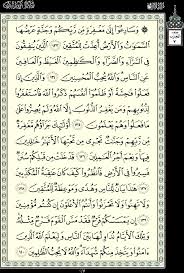 ۞ وَسَارِعُوٓا۟ إِلَىٰ مَغْفِرَةٍ مِّن رَّبِّكُمْ وَجَنَّةٍ عَرْضُهَا
ٱلسَّمَٰوَٰتُ وَٱلْأَرْضُ أُعِدَّتْ لِلْمُتَّقِينَ ١٣٣ ٱلَّذِينَ يُنفِقُونَ
فِى ٱلسَّرَّآءِ وَٱلضَّرَّآءِ وَٱلْكَٰظِمِينَ ٱلْغَيْظَ وَٱلْعَافِينَ
عَنِ ٱلنَّاسِ وَٱللَّهُ يُحِبُّ ٱلْمُحْسِنِينَ ١٣٤ وَٱلَّذِينَ إِذَا
فَعَلُوا۟ فَٰحِشَةً أَوْ ظَلَمُوٓا۟ أَنفُسَهُمْ ذَكَرُوا۟ ٱللَّهَ فَٱسْتَغْفَرُوا۟
لِذُنُوبِهِمْ وَمَن يَغْفِرُ ٱلذُّنُوبَ إِلَّا ٱللَّهُ وَلَمْ يُصِرُّوا۟ عَلَىٰ
مَا فَعَلُوا۟ وَهُمْ يَعْلَمُونَ ١٣٥ أُو۟لَٰٓئِكَ جَزَآؤُهُم مَّغْفِرَةٌ
مِّن رَّبِّهِمْ وَجَنَّٰتٌ تَجْرِى مِن تَحْتِهَا ٱلْأَنْهَٰرُ خَٰلِدِينَ
فِيهَا وَنِعْمَ أَجْرُ ٱلْعَٰمِلِينَ ١٣٦ قَدْ خَلَتْ مِن قَبْلِكُمْ
سُنَنٌ فَسِيرُوا۟ فِى ٱلْأَرْضِ فَٱنظُرُوا۟ كَيْفَ كَانَ عَٰقِبَةُ
ٱلْمُكَذِّبِينَ ١٣٧ هَٰذَا بَيَانٌ لِّلنَّاسِ وَهُدًى وَمَوْعِظَةٌ لِّلْمُتَّقِينَ
١٣٨ وَلَا تَهِنُوا۟ وَلَا تَحْزَنُوا۟ وَأَنتُمُ ٱلْأَعْلَوْنَ إِن كُنتُم
مُّؤْمِنِينَ ١٣٩ إِن يَمْسَسْكُمْ قَرْحٌ فَقَدْ مَسَّ ٱلْقَوْمَ قَرْحٌ مِّثْلُهُۥ
وَتِلْكَ ٱلْأَيَّامُ نُدَاوِلُهَا بَيْنَ ٱلنَّاسِ وَلِيَعْلَمَ ٱللَّهُ ٱلَّذِينَ
ءَامَنُوا۟ وَيَتَّخِذَ مِنكُمْ شُهَدَآءَ وَٱللَّهُ لَا يُحِبُّ ٱلظَّٰلِمِينَ ١٤٠